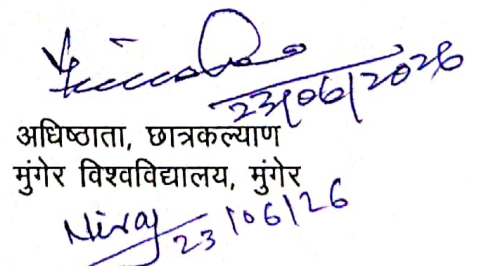 23/06/2026
अधिष्ठाता, छात्रकल्याण
मुंगेर विश्वविद्यालय, मुंगेर
Niraj 23/06/26